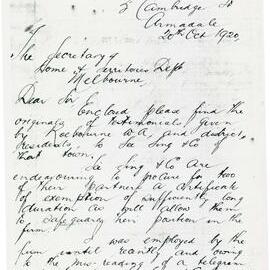 5 Cambridge St
Armadale
20th Oct 1920
The Secretary
Home & Territories Dept
Melbourne,
Dear Sir
Enclosed please find the
originals of testimonials given
by Melbourne W.A. and district
residents, to See Sing & Co of
that town.
See Sing & Co are
endeavouring to procure for two
of their partners a certificate
of exemption of sufficiently long
duration as will allow them
to safeguard their position in the
firm.
I was employed by the
firm until recently and owing
to the mis-reading of a telegram